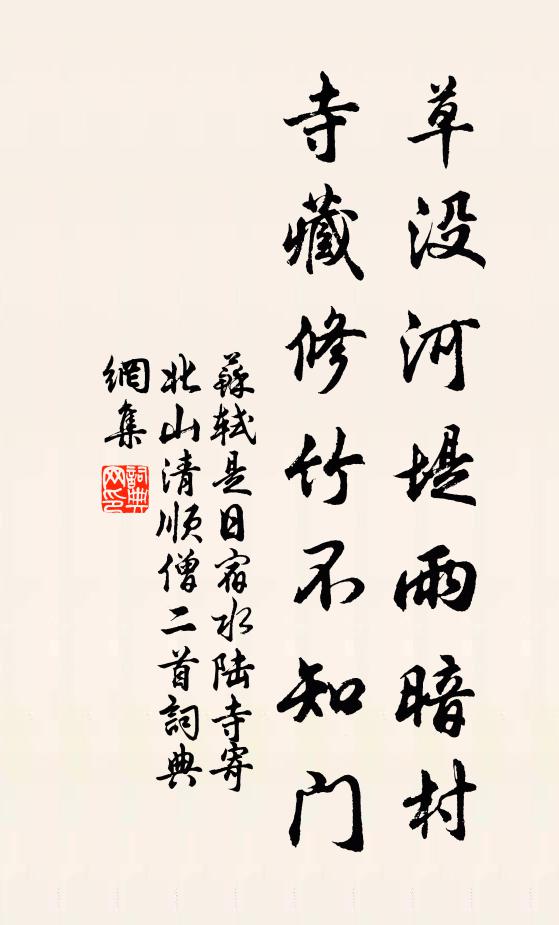 草没河堤雨暗村
寺藏修竹不知門
蘇軾是日宿水陸寺寄
北山清順僧二首詞典
網集
詞典
网印